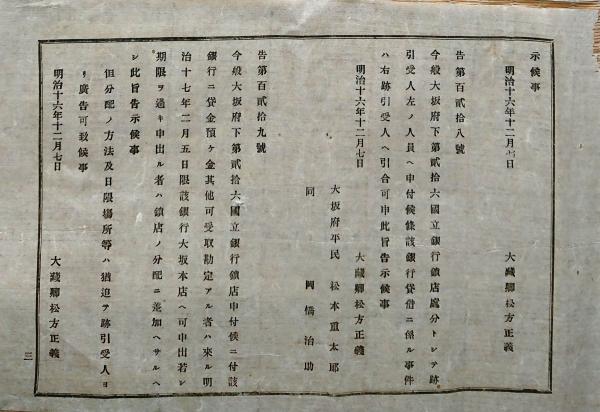 示候事
明治十六年十二月七日
大藏卿松方正義
告第百貳拾八號
今般大坂府下第貳拾六國立銀行鎖店處分トシテ跡
引受人左ノ人員ヘ申付候條該銀行貸借ニ係ル事件
ハ右跡引受人ヘ引合可申此旨告示候事
明治十六年十二月七日
大藏卿松方正義
大坂府平民 松本重太郎
同 岡橋治助
告第百貳拾九號
今般大坂府下第貳拾六國立銀行鎖店申付候ニ付該
銀行ニ貸金預ケ金其他可受取勘定アル者ハ來ル明
治十七年二月五日限該銀行大坂本店ヘ可申出若シ
期限ヲ過キ申出ル者ハ鎖店ノ分配ニ差加ヘサルヘ
シ此旨告示候事
但分配ノ方法及日限塲所等ハ猶追テ跡引受人ヨ
リ廣告可致候事
明治十六年十二月七日
大藏卿松方正義
三